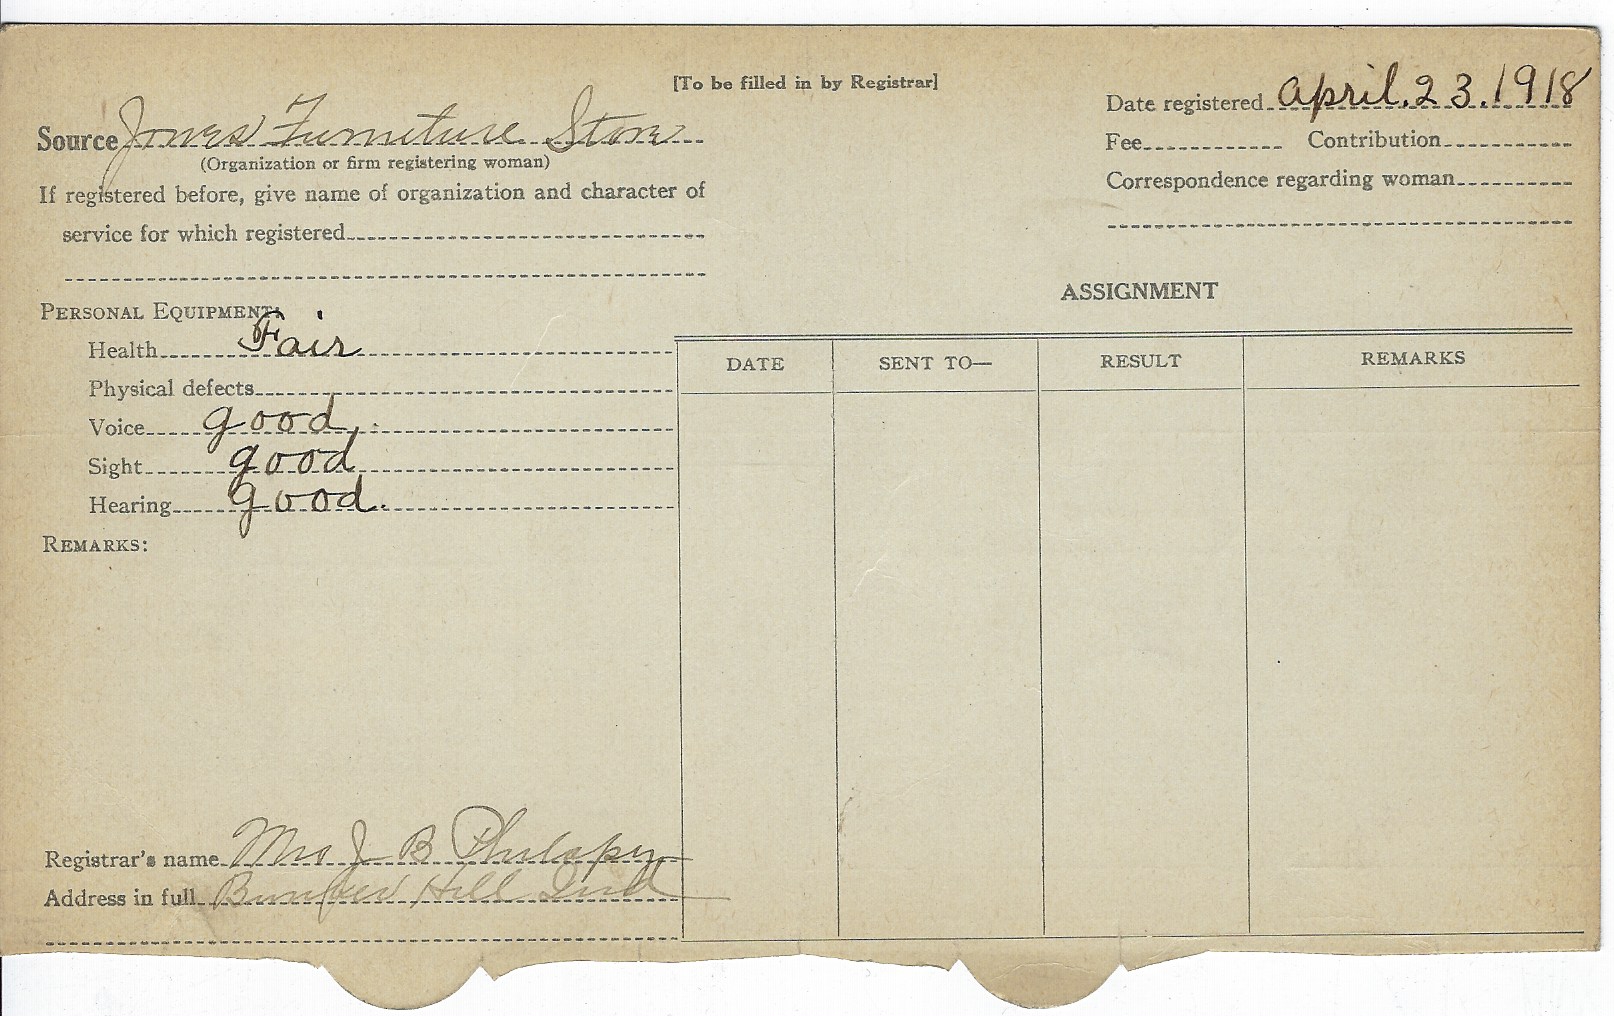 [To be filled in by Registrar]
Source Jones Furniture Store
(Organization or firm registering woman)
If registered before, give name of organization and character of
service for which registered
Date registered April. 23. 1918
Fee Contribution
Correspondence regarding woman
PERSONAL EQUIPMENT:
Health Fair
Physical defects
Voice good.
Sight good
Hearing good.
REMARKS:
ASSIGNMENT
DATE SENT TO— RESULT REMARKS
Registrar's name Mrs J B
Address in full Bunker Hill Ind